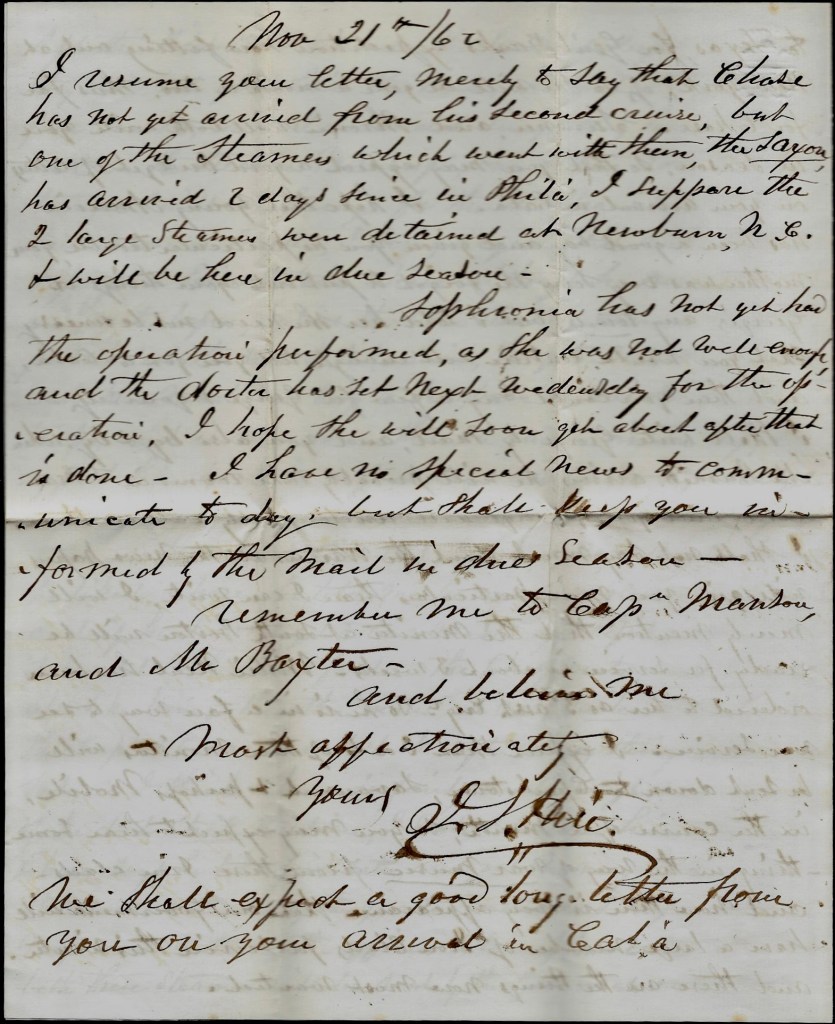 Nov 21st/62
I resume your letter, merely to say that Chase
has not yet arrived from his second cruise, but
one of the Steamers which went with them, the Saxon,
has arrived 2 days since in Phila, I suppose the
2 large Steamers were detained at Newburn, N C.
& will be here in due season -
Sophronia has not yet had
the operation performed, as she was not well enough,
and the doctor has set next Wednesday for the op-
eration, I hope she will soon get about after that
is done - I have no special news to comm-
unicate to day, but shall keep you in-
formed by the Mail in due season -
remember me to Capn Manson,
and Mr Baxter -
and believe me
Most affectionately
Yours
We shall expect a good long letter from
you on your arrival in Cal'a